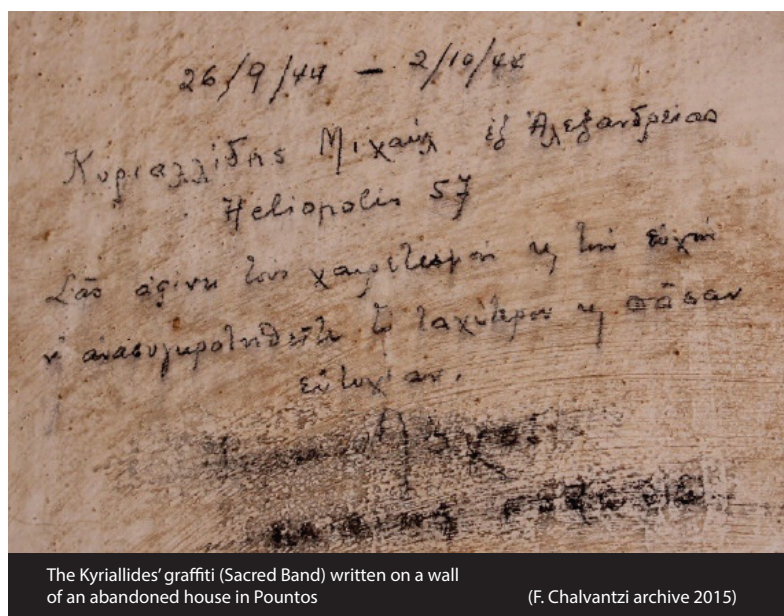 26/9/44 — 2/10/44
Κυριαλλίδης Μιχαήλ ἐξ Ἀλεξανδρείας
Heliopolis 57
Σᾶς ἀφίνει τους χαιρετισμού ϗ την εὐχήν
ν' ανασυγκροτηθεῖτε το ταχύτερον ϗ πᾶσαν
εὐτυχίαν.
The Kyriallides' graffiti (Sacred Band) written on a wall
of an abandoned house in Pountos
(F. Chalvantzi archive 2015)